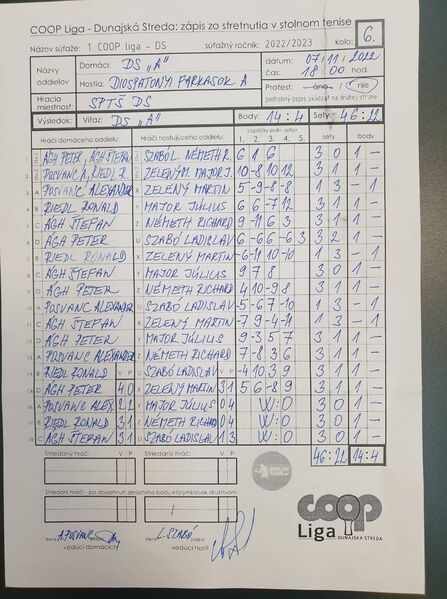 COOP Liga - Dunajská Streda: zápis zo stretnutia v stolnom tenise
Názov súťaže: 1. COOP liga - DS súťažný ročník: 2022/2023 kolo: 6.
Názvy oddielov Domáci: DS "A" dátum: 07/11/2022
Hostia: DIOSPATONYI FARKASOK A čas: 18:00 hod.
Hracia miestnosť: SPTŠ DS Protest: áno - nie
podrobný popis uvádzať na druhej strane
Výsledok: Víťaz: DS "A" Body: 14:4 Sety: 46:22
Hráči domáceho oddielu: Hráči hosťujúceho oddielu: Loptičky jedn. setov sety body
1. 2. 3. 4. 5.
1. ÁGH PETER, ÁGH ŠTEFAN SZABÓ L. NÉMETH R. 6 1 6 3 0 1 -
2. POSVANC A., RIEDL R. ZELENÝ M. MAJOR J. 10 -8 10 12 3 1 1 -
3. A POSVANC ALEXANDER X ZELENÝ MARTIN 5 -9 -8 -8 1 3 - 1
4. B RIEDL RONALD Y MAJOR JÚLIUS 6 6 -7 12 3 1 1 -
5. C ÁGH ŠTEFAN Z NÉMETH RICHARD 9 -11 6 3 3 1 1 -
6. D ÁGH PETER U SZABÓ LADISLAV 6 -6 6 -6 3 3 2 1 -
7. B RIEDL RONALD X ZELENÝ MARTIN -6 -11 10 -10 1 3 - 1
8. C ÁGH ŠTEFAN Y MAJOR JÚLIUS 9 7 8 3 0 1 -
9. D ÁGH PETER Z NÉMETH RICHARD 4 10 -9 8 3 1 1 -
10. A POSVANC ALEXANDER U SZABÓ LADISLAV -5 -6 7 -10 1 3 - 1
11. C ÁGH ŠTEFAN X ZELENÝ MARTIN -7 9 -4 -11 1 3 - 1
12. D ÁGH PETER Y MAJOR JÚLIUS 9 -3 5 7 3 1 1 -
13. A POSVANC ALEXANDER Z NÉMETH RICHARD 7 -8 3 6 3 1 1 -
14. B RIEDL RONALD V P U SZABÓ LADISLAV V P -4 10 3 9 3 1 1 -
15. D ÁGH PETER 4 0 X ZELENÝ MARTIN 3 1 5 6 -8 9 3 1 1 -
16. A POSVANC ALEX. 2 2 Y MAJOR JÚLIUS 0 4 W:O 3 0 1 -
17. B RIEDL RONALD 3 1 Z NÉMETH RICHARD 0 4 W:O 3 0 1 -
18. C ÁGH ŠTEFAN 3 1 U SZABÓ LADISLAV 1 3 W:O 3 0 1 -
Striedaný hráč: V P Striedaný hráč: V P 46:22 14:4
Striedaní hráči - po dovŕšení desiateho bodu ktorýmkoľvek družstvom
A. POSVANC L. SZABÓ
meno podpis meno podpis
vedúci domácich vedúci hostí
coop
Liga DUNAJSKÁ STREDA